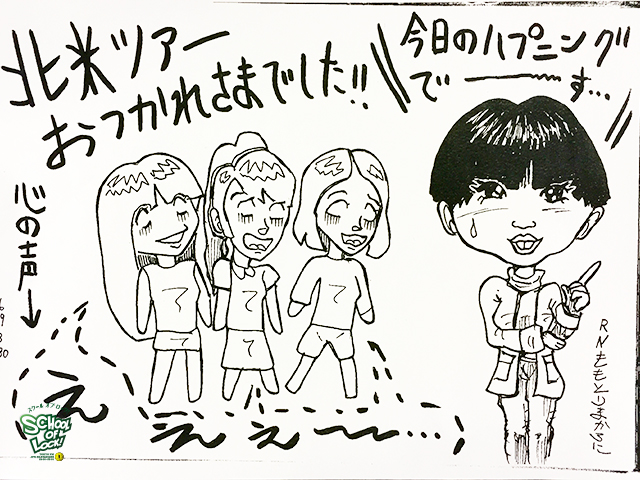 北米ツアー
おつかれさまでした!!
今日のハプニング
で〜す…
心の声→
え
ええ〜…
て
て
て
RNももとりまからに
スクール オブ ロック
SCHOOL
OF
LOCK!